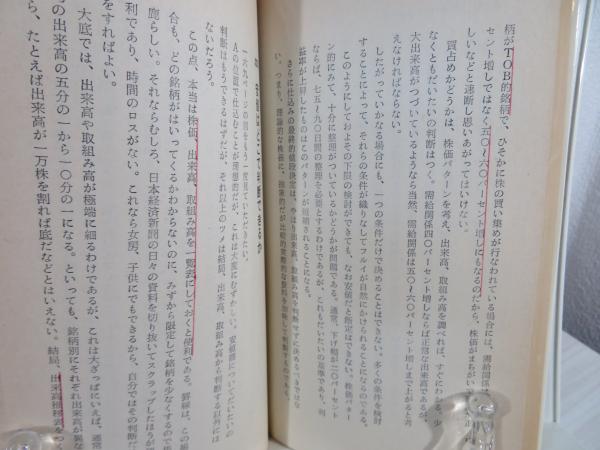 柄がTOB的銘柄で、ひそかに株の買い集めが行なわれている場合には、需給関係
セント増しではなく五〇～六〇パーセント増しにもなるのだから、株価がまちがい
しいなどと速断し思いあがってはいけない。
買占めかどうかは、株価パターンを考え、出来高、取組み高を調べれば、すぐにわかる。少
なくともだいたいの判断はつく。需給関係四〇パーセント増しならば正常な出来高であるが、
大出来高がつづいているようなら当然、需給関係は五〇～六〇パーセント増しまで上がると考
えなければならない。
したがっていかなる場合にも、一つの条件だけで決めることはできない。多くの条件を検討
することによって、それらの条件が織りなしてフルイが自然にかけられることになるのである。
このようにしておよその下限の検討ができても、なお安値だと断定はできない。株価パター
ン的にみて、十分に整理がついているかどうかが問題である。通常、下げ幅が二〇パーセント
ならば、七五～九〇日間の整理を必要とするわけであるが、これもだいたいの基準であり、利
益率が上昇したものはこのパターンが短縮されることになる。
さらに仕込みの最終的値段決定は、やはり出来高、取組み高を判断せずに決めるべきではな
い。つまり、理論的な株価に、
一六九ページの図をもう一度見ていただきたい。
Aの位置で仕込むことが理想的だが、これは大変にむずかしい。安値圏についてだいたいの
判断はもうできるはずだが、それ以上のツメは結局、出来高、取組み高から判断する以外には
ないだろう。
この点、本当は株価、出来高、取組み高を一覧表にしておくと便利である。罫線は、この場
合も、どの銘柄がはいってくるかわからないのに、みずから限定して銘柄を少なくするので馬
鹿らしい。それならむしろ、日本経済新聞の日々の資料を切り抜いてスクラップしたほうが
利であり、時間のロスがない。これなら女房、子供にでもできるから、自分ではその判断
をすればよい。
大底では、出来高や取組み高が極端に細るわけであるが、これは大ざっぱにいえば、通常
の出来高の五分の一から一〇分の一になる。といっても、銘柄別にそれぞれ出来高が異な
ら、たとえば出来高が一万株を割れば底だなどとはいえない。結局、出来高推移表をつく